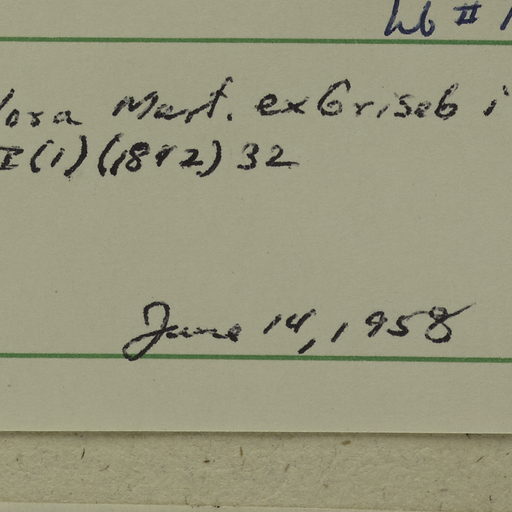 Lb #
Mart. ex Griseb i
I(1)(1842) 32
June 14, 1958